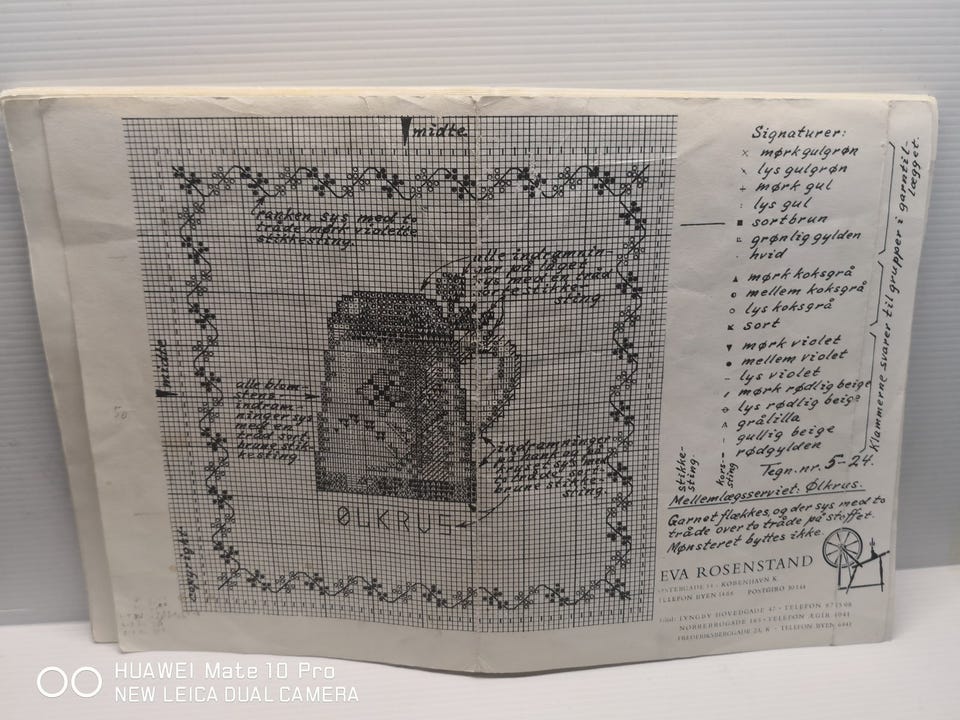 midte
ranken sys med to
tråde mørk violette
stikkesting.
alle indramnin-
ger på låget
sys med en tråd
sorte stikke-
sting
midte
alle blom-
stens
indram
ninger sys
med en
tråd sort
brune stik-
kesting
indramninger
sting.
ØLKRUS
copyright
Signaturer:
mørk gulgrøn
lys gulgrøn
mørk gul
lys gul
sortbrun
grønlig gylden
hvid
mørk koksgrå
mellem koksgrå
lys koksgrå
sort
mørk violet
mellem violet
lys violet
mørk rødlig beige
lys rødlig beige
grålilla
gullig beige
rødgylden
Klammerne svarer til grupper i garntil-
lægget.
Stikke-
sting.
kors-
sting
Tegn. nr. 5-24.
Mellemlægsserviet. Ølkrus.
Garnet flækkes, og der sys med to
tråde over to tråde på stoffet.
Mønsteret byttes ikke.
EVA ROSENSTAND
ØSTERGADE KØBENHAVN K
TELEFON BYEN POSTGIRO
LYNGBY HOVEDGADE 47 • TELEFON
NØRREBROGADE • TELEFON ÆGIR
FREDERIKSBERGGADE K • TELEFON BYEN
HUAWEI Mate 10 Pro
NEW LEICA DUAL CAMERA